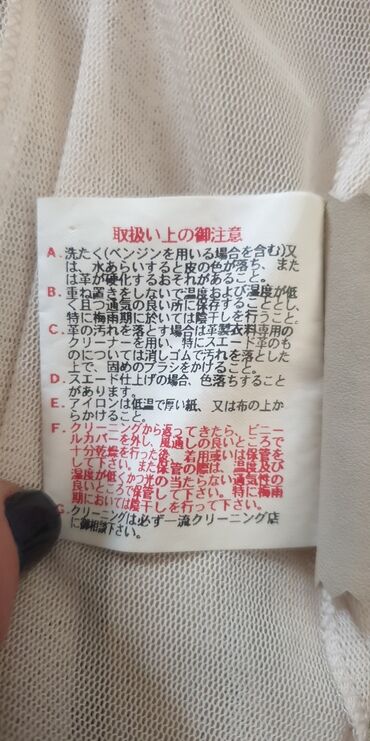 取扱い上の御注意
A. 洗たく(ベンジンを用いる場合を含む)又
は、水あらいすると皮の色が落ち、また
は革が硬化するおそれがあること。
B. 重ね置きをしないで温度および湿度が低
く且つ通気の良い所に保存することとし、
特に梅雨期に於いては陰干しを行うこと。
C. 革の汚れを落とす場合は革製衣料専用の
クリーナーを用い、特にスエード革のも
のについては消しゴムで汚れを落とした
上で、固めのブラシをかけること。
D. スエード仕上げの場合、色落ちすること
があります。
E. アイロンは低温で厚い紙、又は布の上か
らかけること。
F. クリーニングから返ってきたら、ビニー
ルカバーを外し、風通しの良いところで
十分乾燥を行った後、着用或いは保管を
して下さい。また保管の際は、温度及び
湿度が低くかつ光の当たらない通気性の
良いところで保管して下さい。特に梅雨
期においては陰干しを行って下さい。
G. クリーニングは必ず一流クリーニング店
に御相談下さい。